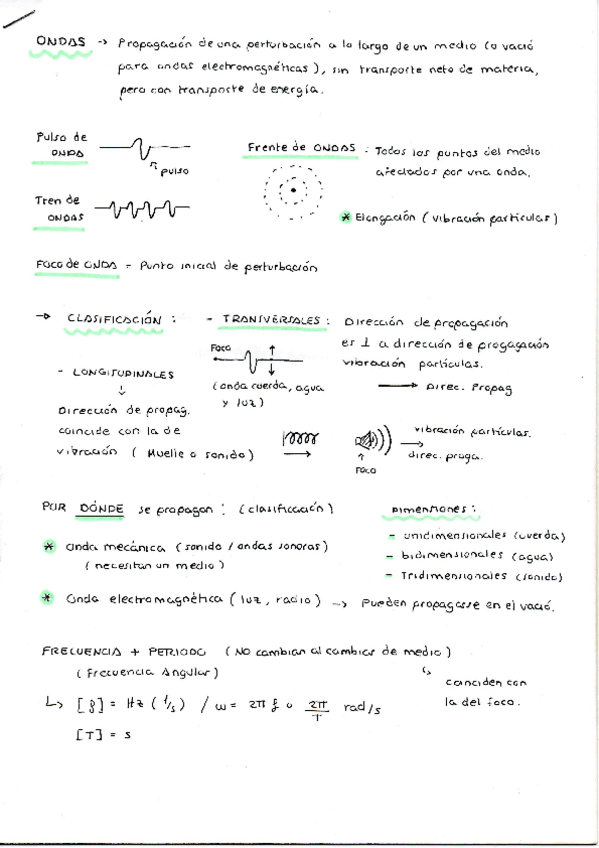 ONDAS → Propagación de una perturbación a lo largo de un medio (o vació
para ondas electromagnéticas), sin transporte neto de materia,
pero con transporte de energía.
Pulso de
ONDA
pulso
Frente de ONDAS : Todos los puntos del medio
afectados por una onda.
Tren de
ONDAS
* Elongación ( vibración partículas)
Foco de ONDA = Punto inicial de perturbación
→ CLASIFICACIÓN :
- TRANSVERSALES : Dirección de propagación
es ⊥ a dirección de progagación
vibración partículas.
Foco
(onda cuerda, agua
y luz)
→ Direc. Propag
- LONGITUDINALES
↓
Dirección de propag.
coincide con la de
vibración ( Muelle o sonido)
vibración partículas.
direc. propa.
foco
POR DÓNDE se propagan : (clasificación)
* Onda mecánica (sonido / ondas sonoras)
( necesitan un medio)
* Onda electromagnética ( luz, radio) → Pueden propagarse en el vació.
Dimensiones :
- unidimensionales (cuerda)
- bidimensionales (agua)
- Tridimensionales (sonido)
FRECUENCIA + PERIODO (NO cambian al cambiar de medio)
( Frecuencia Angular)
↳ coinciden con
la del foco.
↳ [f] = Hz ( 1/s ) / ω = 2π f o 2π/T rad/s
[T] = s